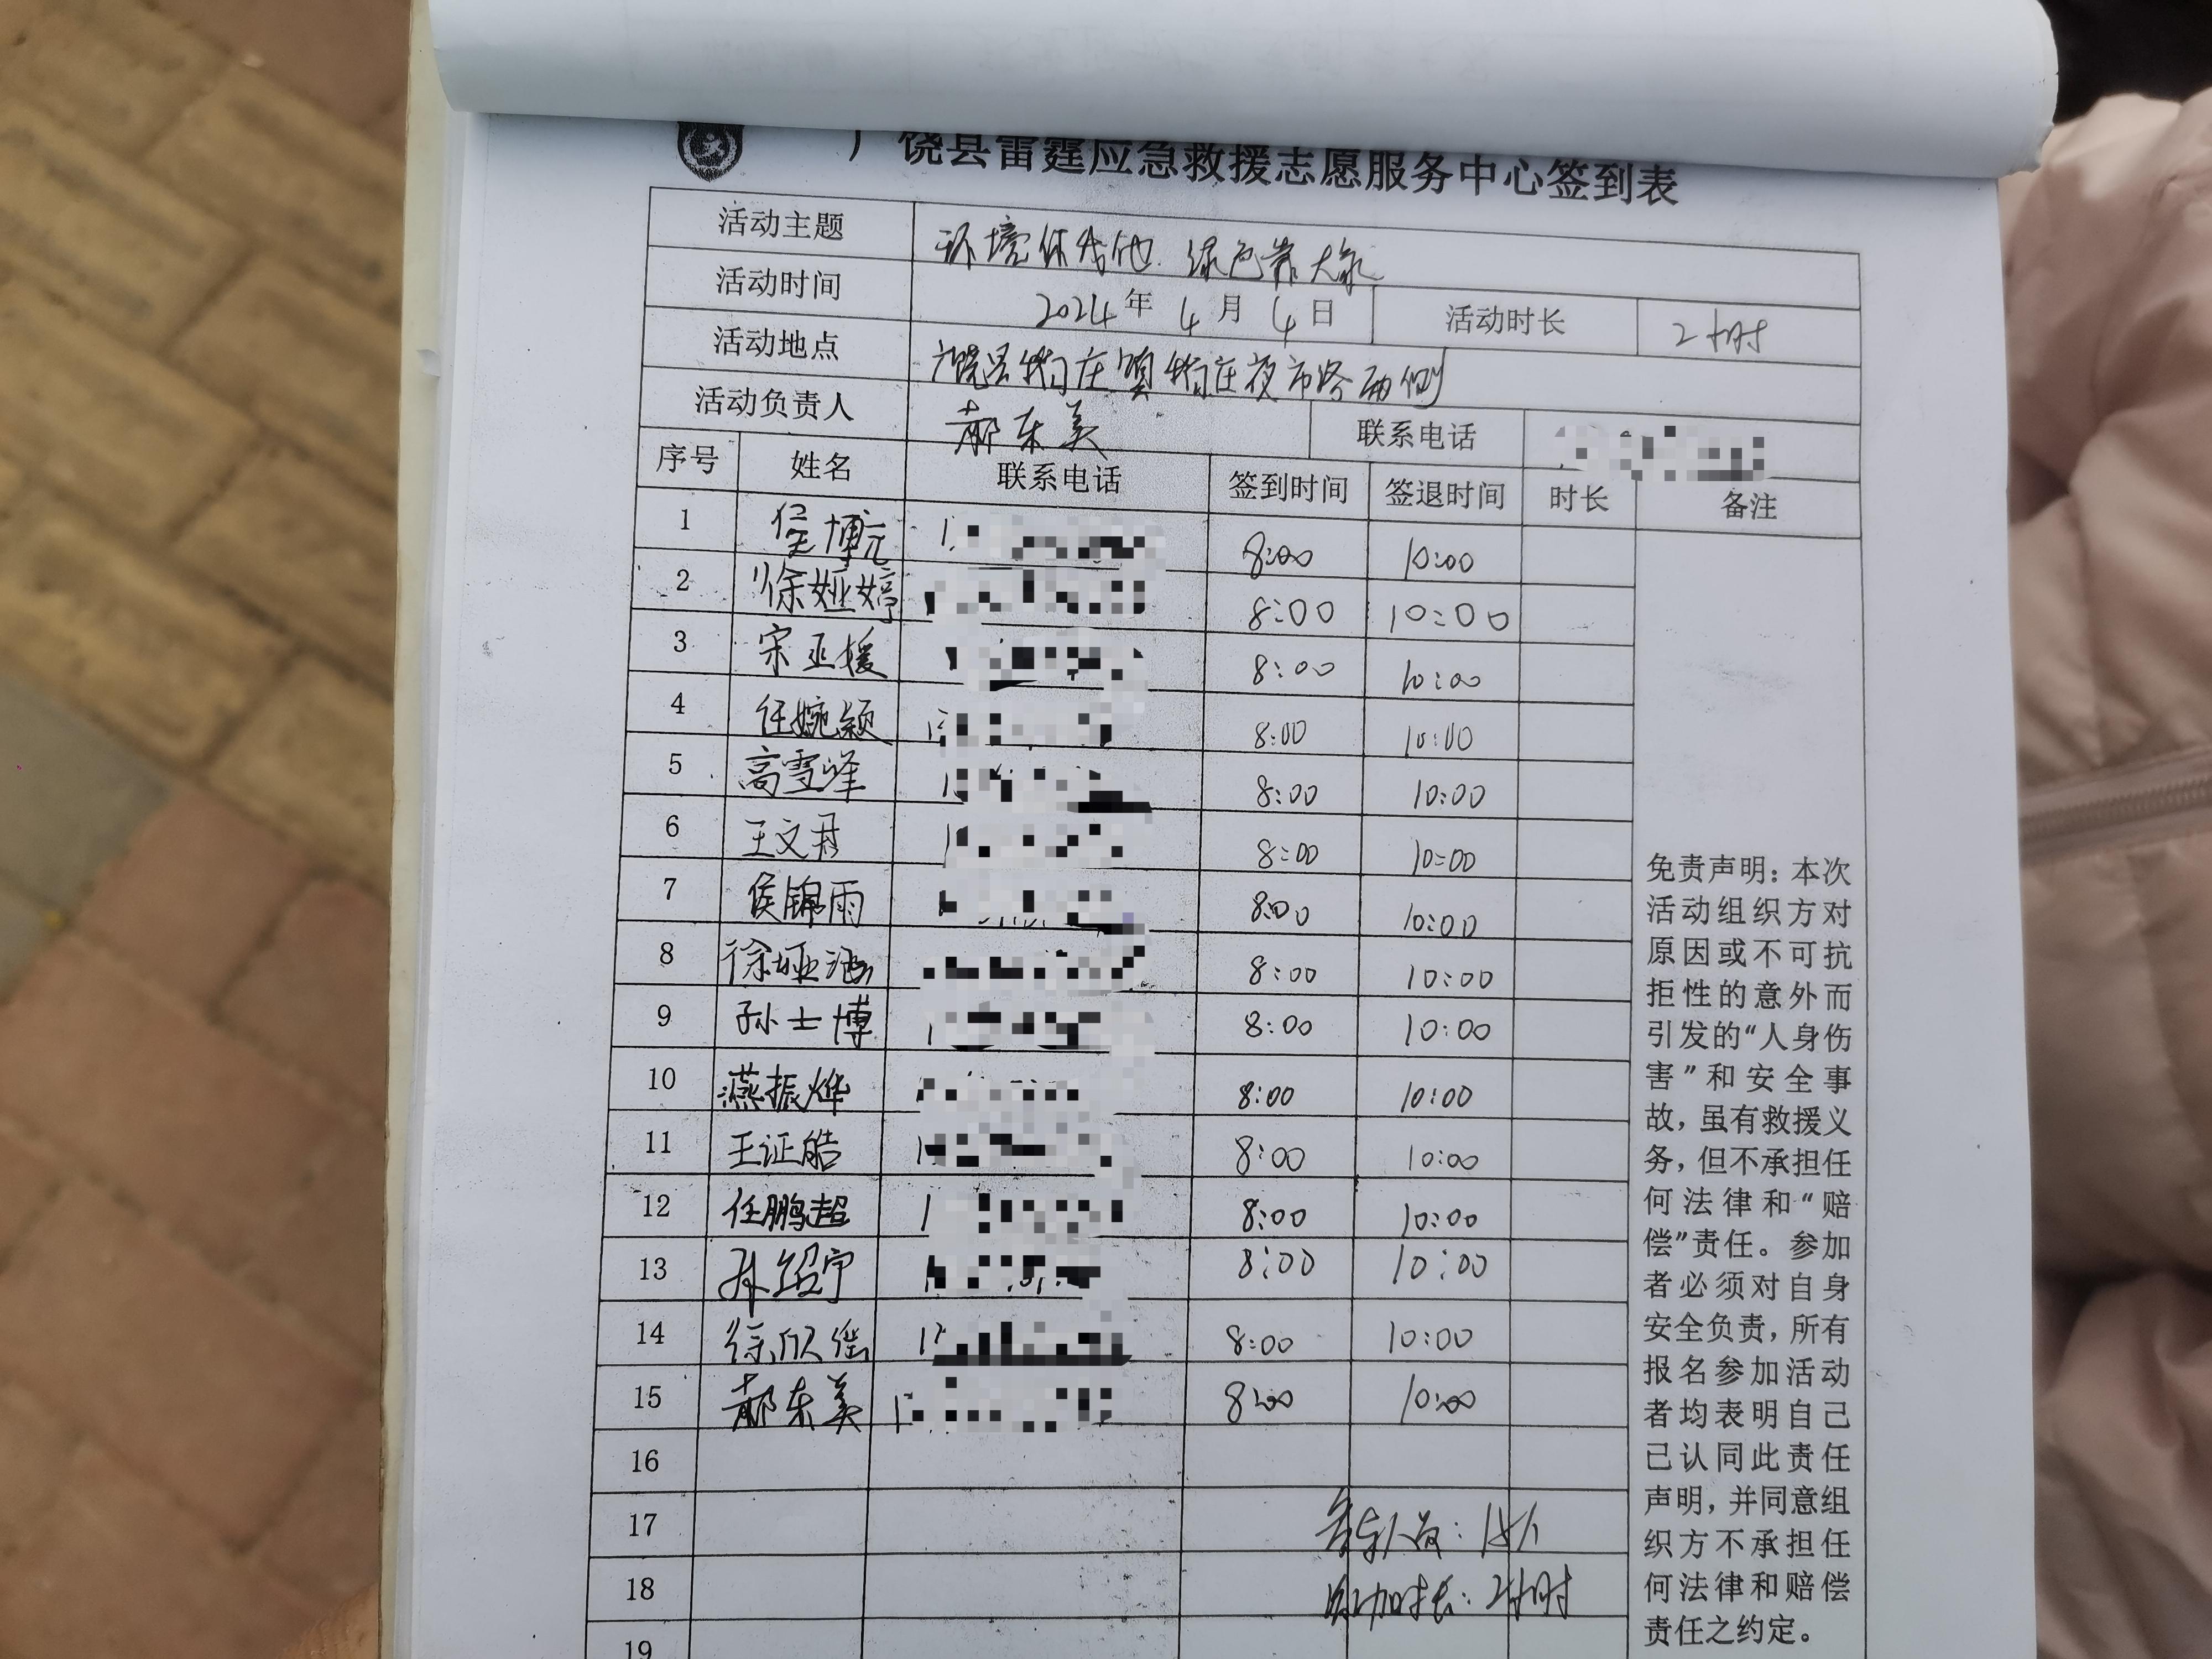 广饶县雷霆应急救援志愿服务中心签到表
活动主题 环境保护 绿色靠大家
活动时间 2024年 4月 4日 活动时长 2小时
活动地点 广饶县 夜市路西侧
活动负责人 郝东美 联系电话
序号 姓名 联系电话 签到时间 签退时间 时长 备注
1 侯博元 8:00 10:00
2 徐娅婷 8:00 10:00
3 宋亚媛 8:00 10:00
4 任婉颖 8:00 10:00
5 高雪峰 8:00 10:00
6 王文君 8:00 10:00
7 侯锦雨 8:00 10:00
8 徐娅涵 8:00 10:00
9 孙士博 8:00 10:00
10 燕振烨 8:00 10:00
11 王证皓 8:00 10:00
12 任鹏超 8:00 10:00
13 孙绍宇 8:00 10:00
14 徐欣瑶 8:00 10:00
15 郝东美 8:00 10:00
16
17 参与人员：15人
18 参加时长：2小时
19
免责声明：本次
活动组织方对
原因或不可抗
拒性的意外而
引发的“人身伤
害”和安全事
故，虽有救援义
务，但不承担任
何法律和“赔
偿”责任。参加
者必须对自身
安全负责，所有
报名参加活动
者均表明自己
已认同此责任
声明，并同意组
织方不承担任
何法律和赔偿
责任之约定。